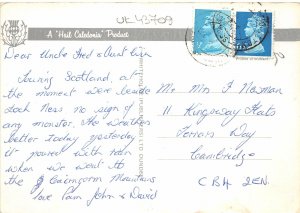 UK43709
A "Hail Caledonia" Product
Dear Uncle Fred & Aunt
Touring Scotland, at
the moment were beside
Loch Ness no sign of
any monster. The weather
better today yesterday
it poured with rain
when we went to
the Cairngorm Mountains
love Pam John & David
Mr Mrs F Newman
11 Kingsway Flats
Way
Cambridge
CB4 2EN.